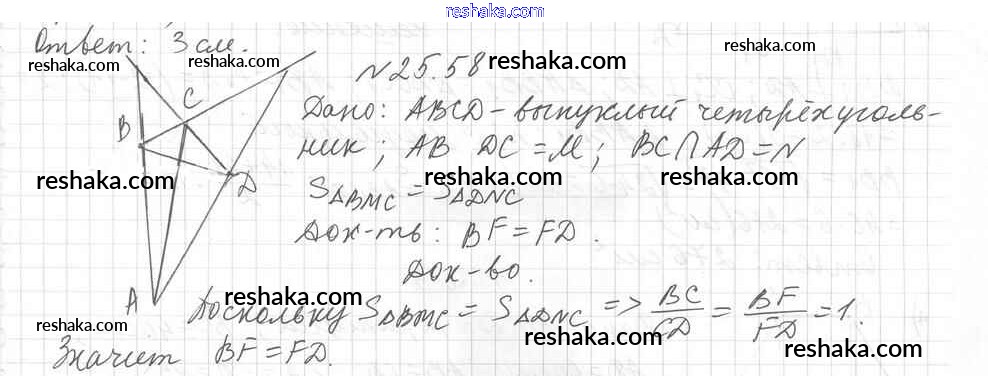 reshaka.com
Ответ: 3 см.
reshaka.com
reshaka.com
№25.58
reshaka.com
Дано: ABCD - выпуклый четырёхуголь-
reshaka.com
reshaka.com
C
B
ник; AB DC = M; BC∩AD = N
reshaka.com
reshaka.com
D
S△BMC = S△DNC
Док-ть: BF = FD.
reshaka.com
Док-во.
A
Поскольку S△BMC = S△DNC => BC/CD = BF/FD = 1.
reshaka.com
reshaka.com
reshaka.com
Значит BF = FD.
reshaka.com
reshaka.com
reshaka.com